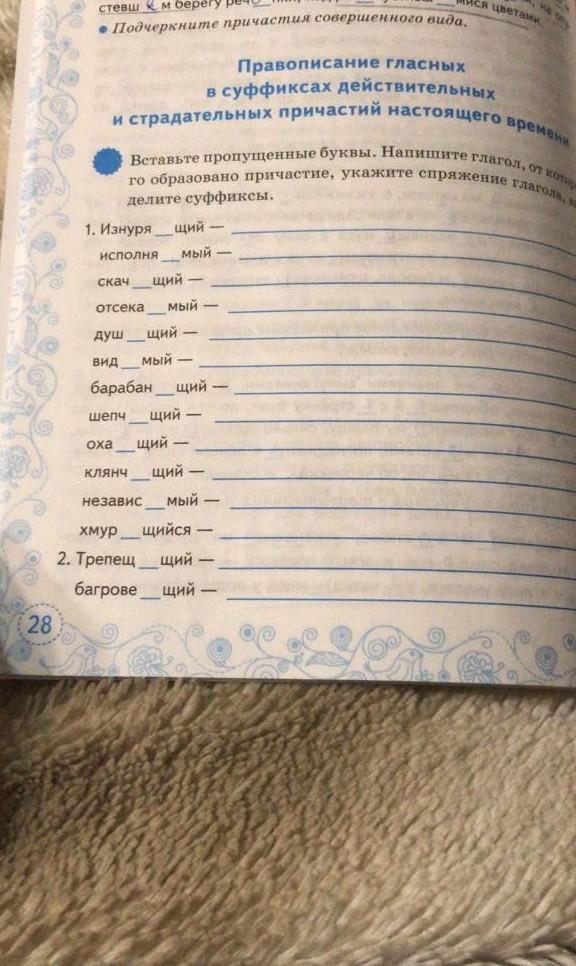 стевш к м берегу реч
мися цветами.
• Подчеркните причастия совершенного вида.
Правописание гласных
в суффиксах действительных
и страдательных причастий настоящего времени
Вставьте пропущенные буквы. Напишите глагол, от котор
го образовано причастие, укажите спряжение глагола,
делите суффиксы.
1. Изнуря__щий —
исполня__мый —
скач__щий —
отсека__мый —
душ__щий —
вид__мый —
барабан__щий —
шепч__щий —
оха__щий —
клянч__щий —
независ__мый —
хмур__щийся —
2. Трепещ__щий —
багрове__щий —
28